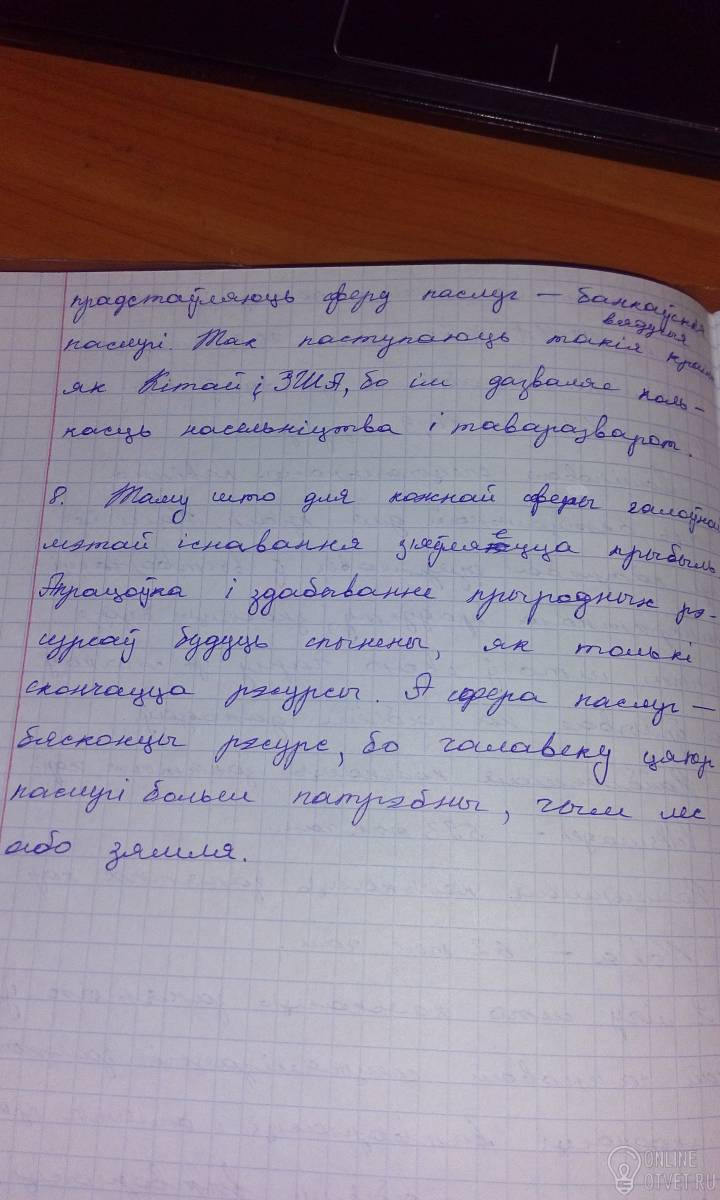 прадстаўляюць сферу паслуг — банкаўскія
вядучыя
паслугі. Так паступаюць такія краіны
як Кітай і ЗША, бо ім дазваляе коль-
касць насельніцтва і тавараразварот.
8. Таму што для кожнай сферы галоўнай
мэтай існавання з'яўляецца прыбыль
Апрацоўка і здабыванне прыродных рэ-
сурсаў будуць спынены, як толькі
скончацца рэсурсы. А сфера паслуг —
бясконцы рэсурс, бо чалавеку цяпер
паслугі больш патрэбны, чым лес
або зямля.
ONLINE
OTVET.RU